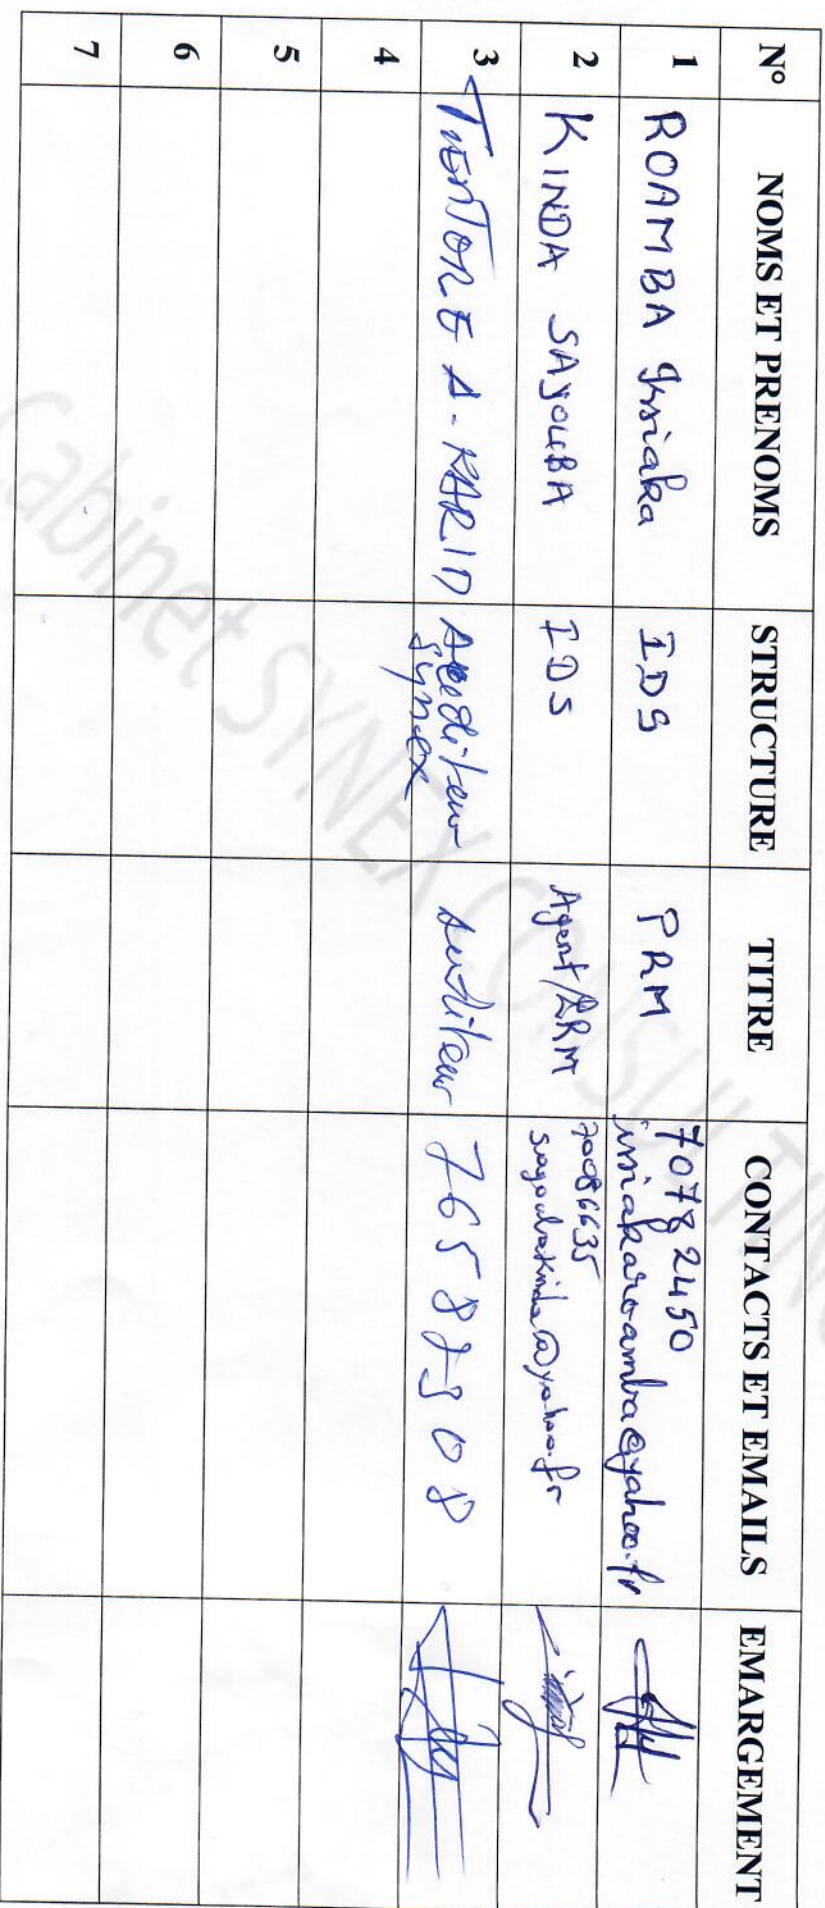 N° NOMS ET PRENOMS STRUCTURE TITRE CONTACTS ET EMAILS EMARGEMENT
1 ROAMBA Issiaka IDS PRM 70782450
issiakaroamba@yahoo.fr
2 KINDA SAYOUBA IDS Agent/PRM 70086635
sayoubakinda@yahoo.fr
3 A-KARIM Auditeur Auditeur
Synex
4
5
6
7
Cabinet SYNEX CONSULTING